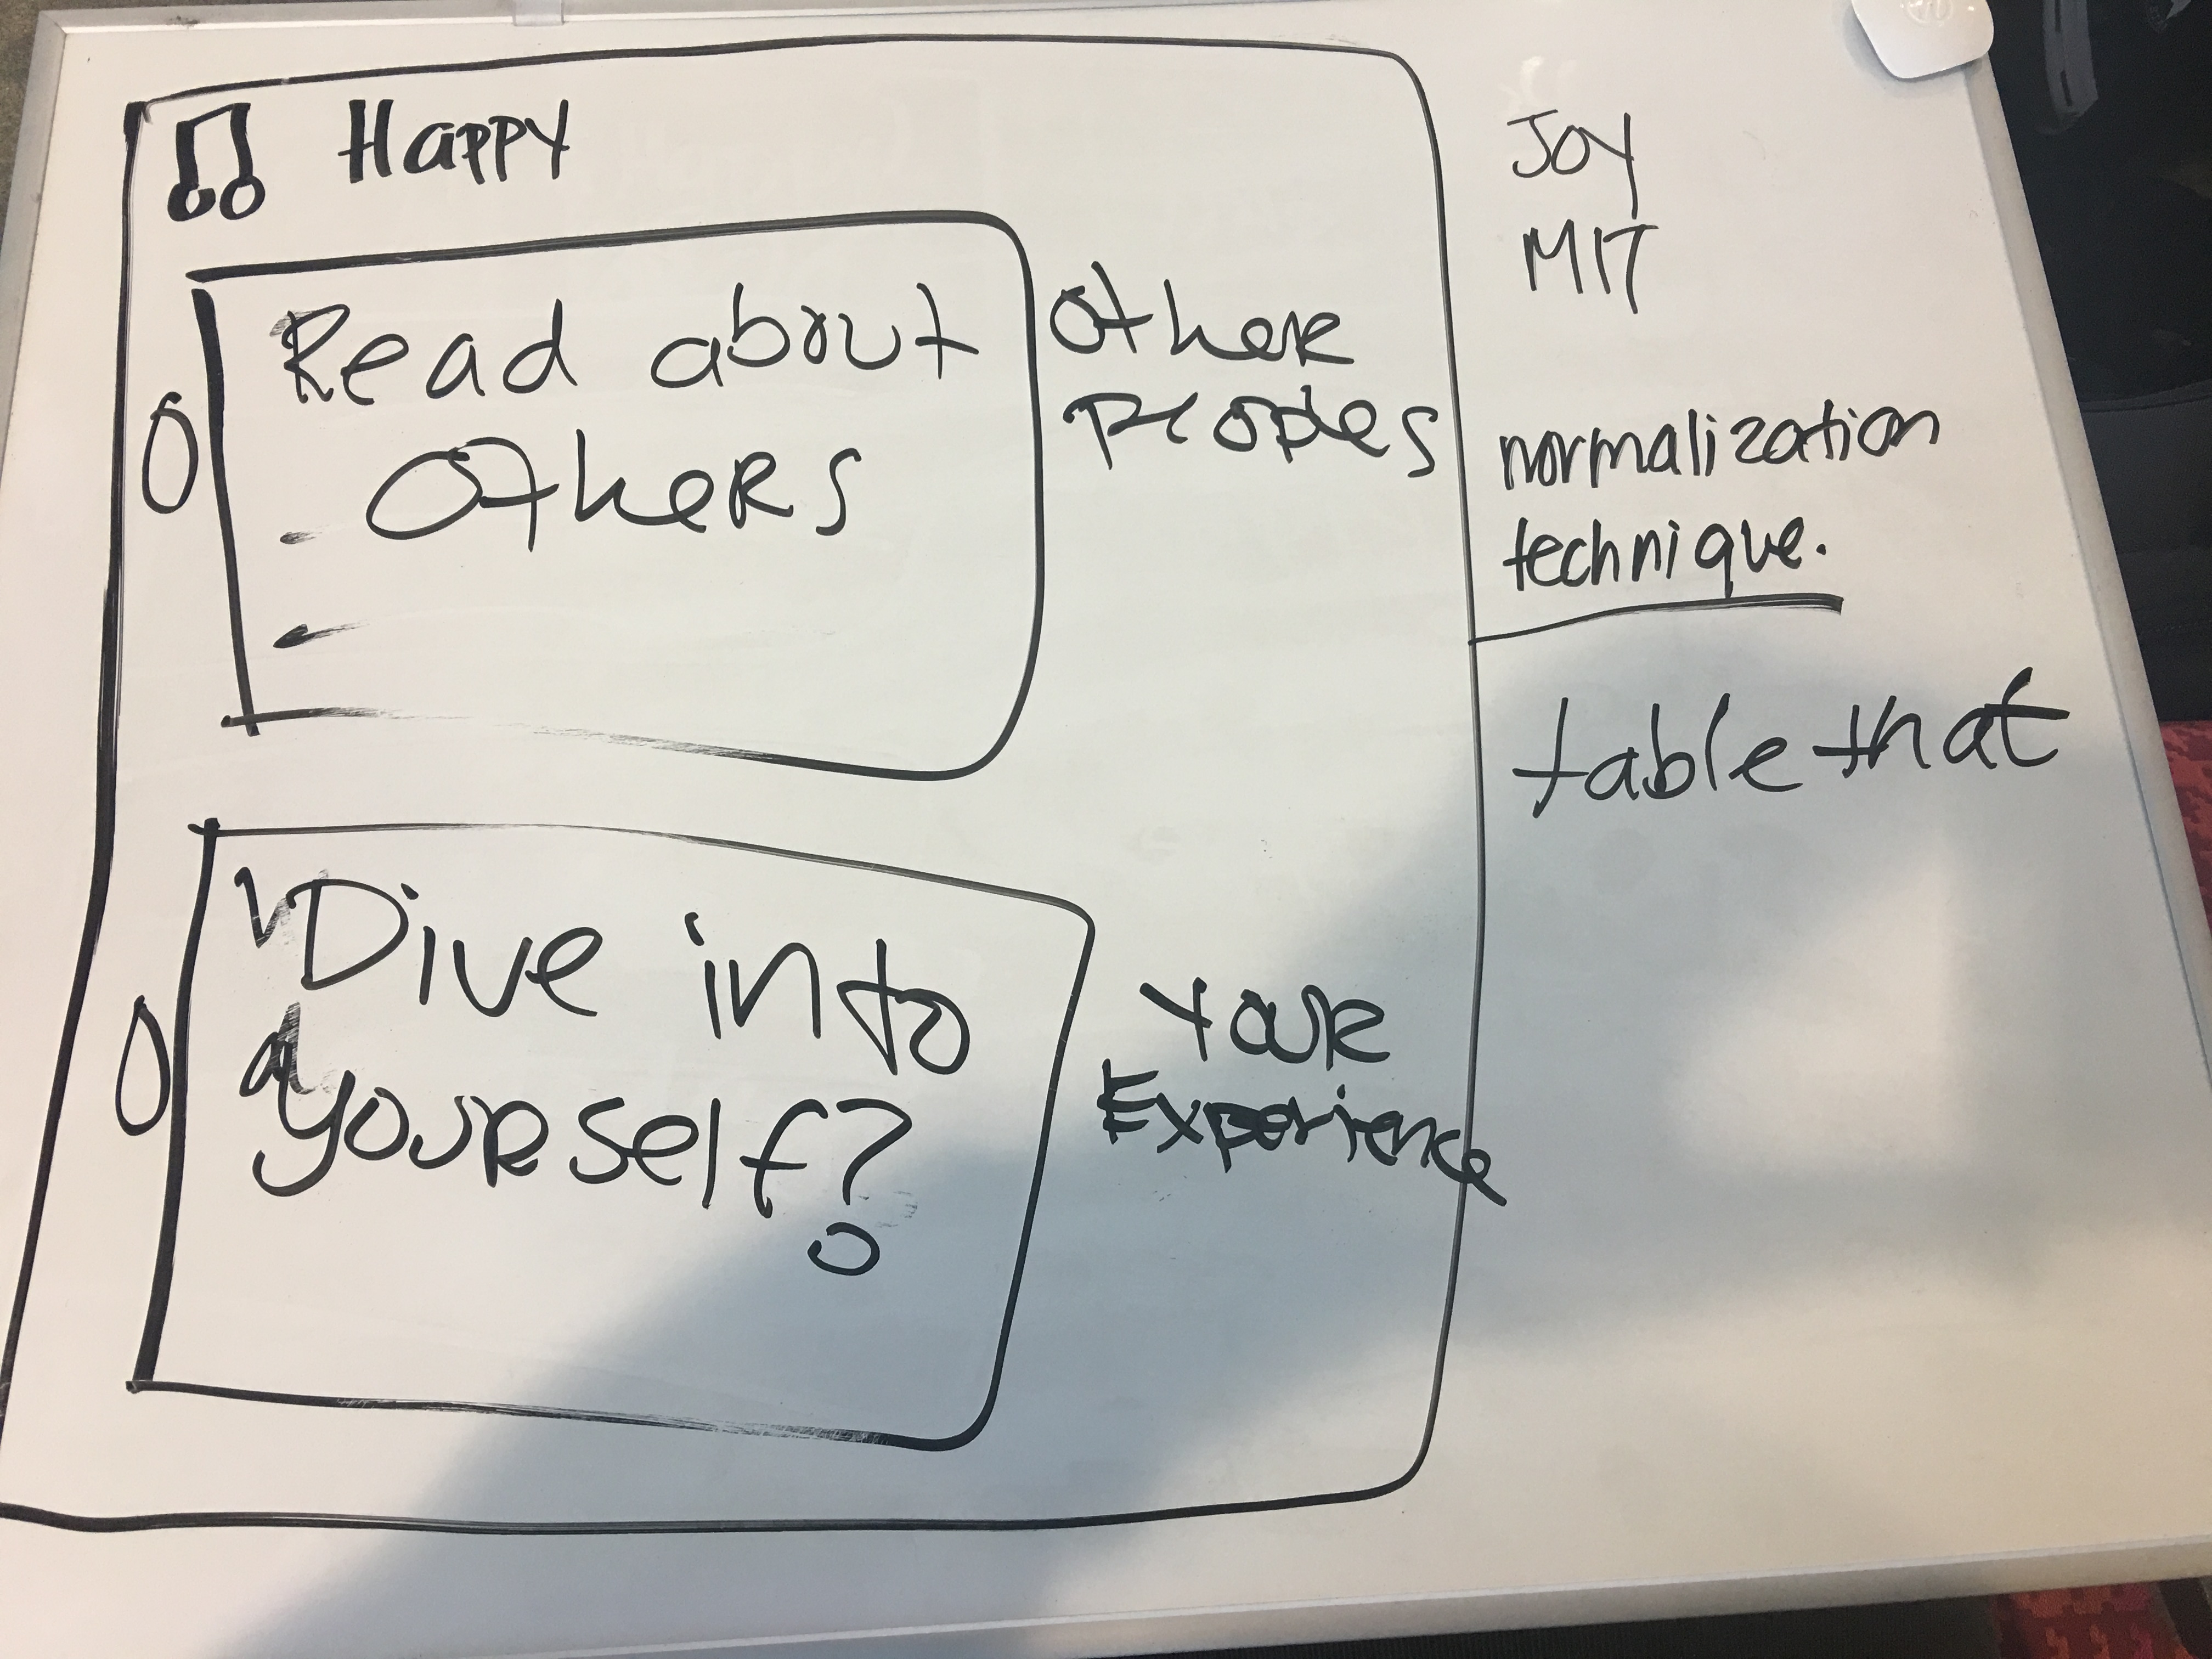 Happy
Read about
Others
Other
Peoples
Dive into
yourself?
Your
Experience
Joy
MIT
normalization
technique.
table that